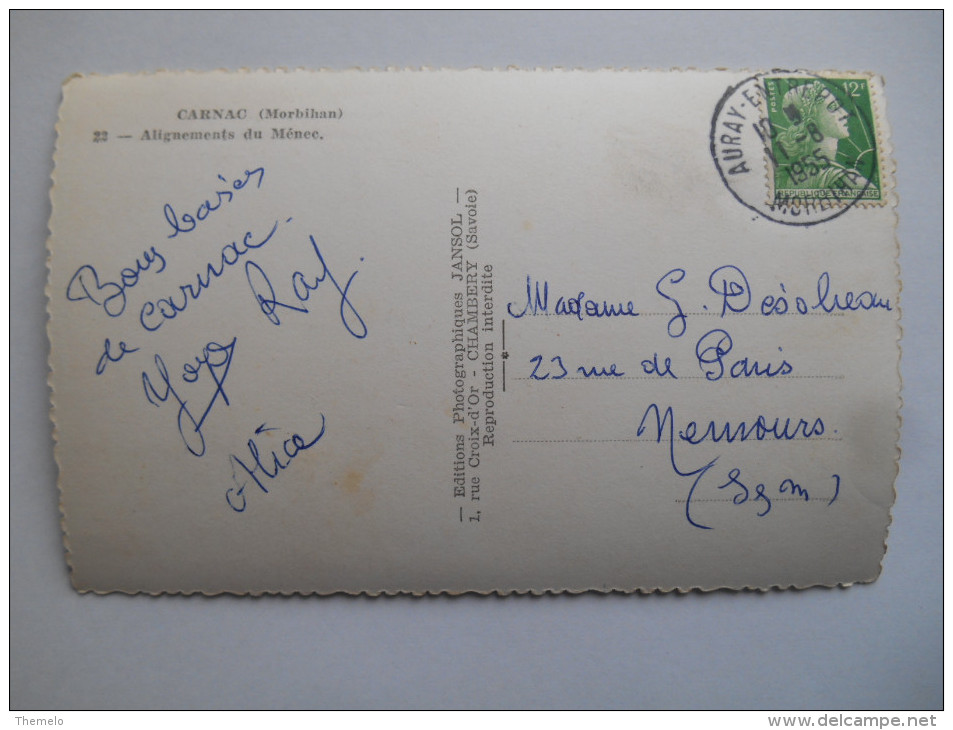 CARNAC (Morbihan)
22 — Alignements du Ménec.
Bons baisers
de Carnac.
Yoyo Ray.
Alice
— Editions Photographiques JANSOL —
1, rue Croix-d'Or - CHAMBERY (Savoie)
Reproduction interdite
POSTES
12F
REPUBLIQUE FRANÇAISE
AURAY-ENTREPOT
1955
MORBIHAN
Madame G.
23 rue de Paris
Nemours.
(S&M)
Themelo
www.delcampe.net